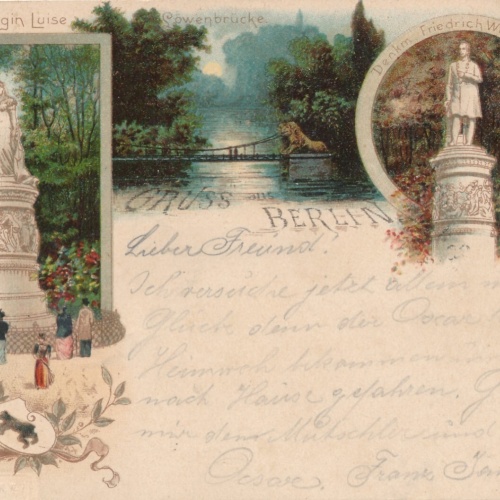 gin Luise
Löwenbrücke
Denkm. Friedrich W
GRUSS aus
BERLIN
Lieber Freund!
Ich versuche jetzt allein
Glück denn der Oscar
Heimweh bekommen
nach Hause gefahren. G
mir dem Mutschler und
Oscar. Franz